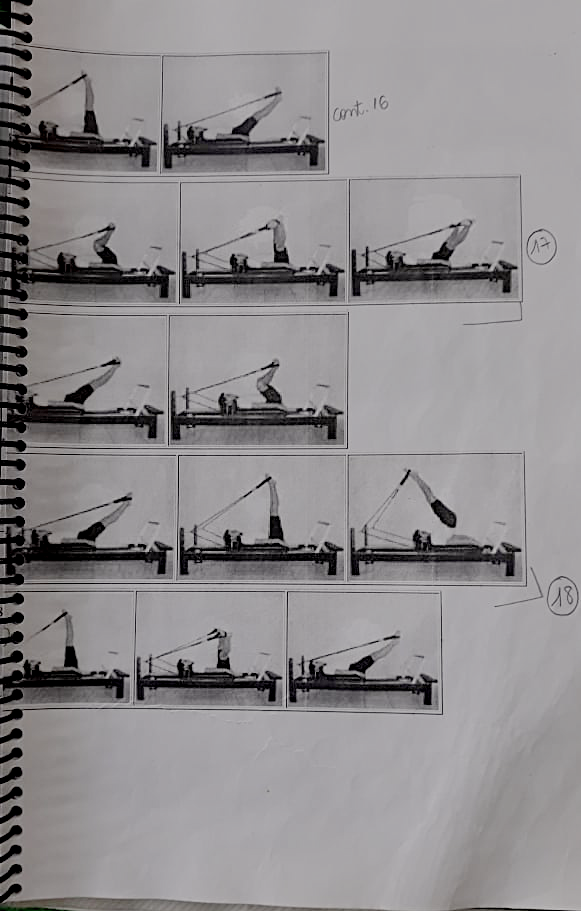 cont. 16
17
18
8